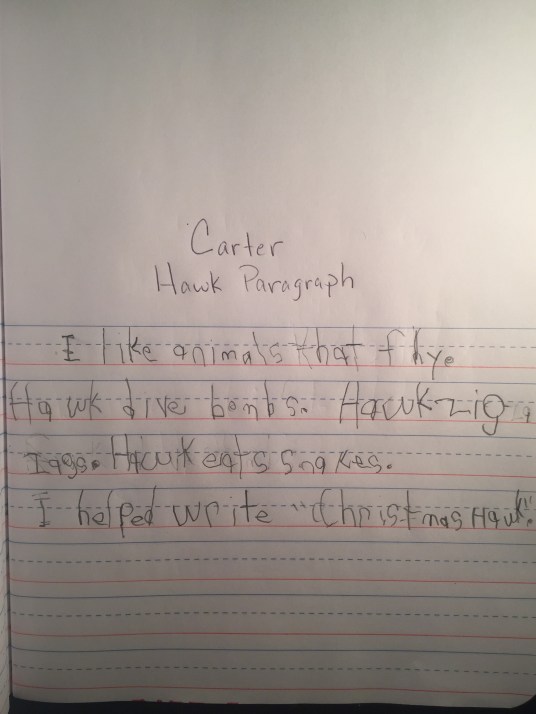 Carter
Hawk Paragraph
I like animals that flye
Hawk dive bombs. Hawk zig
zags. Hawk eats snakes.
I helped write "Christmas Hawk".